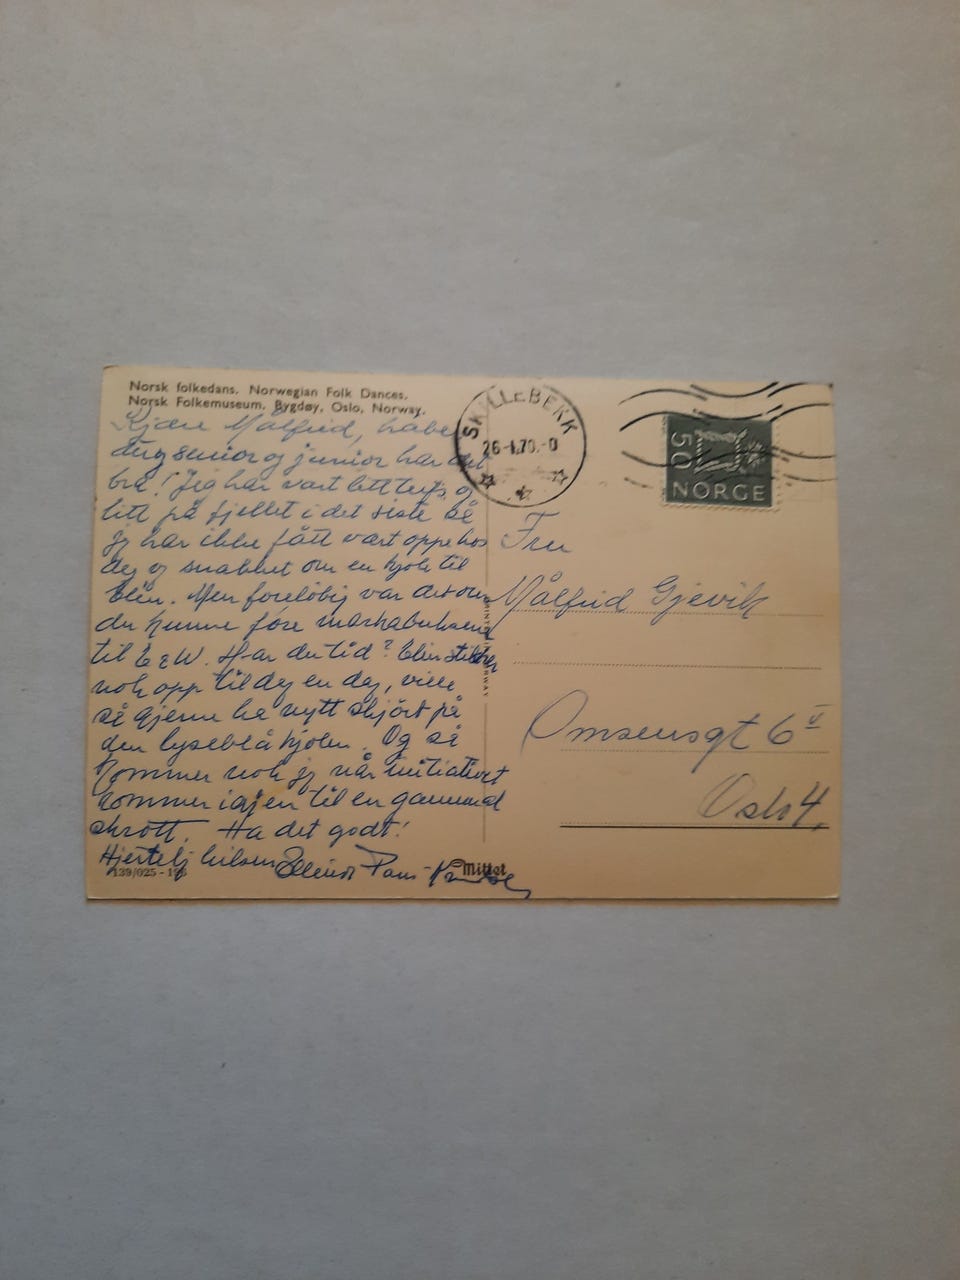 Norsk folkedans. Norwegian Folk Dances.
Norsk Folkemuseum, Bygdøy, Oslo, Norway.
Kjære Målfrid, håber
du, senior og junior har det
bra! Jeg har vært litt og
litt på fjellet i det siste så
jeg har ikke fått vært oppe hos
deg og snakket om en kjole til
Elin. Men foreløbig var det om
du kunne
til E & W. Har du tid? Elin stikker
nok opp til deg en dag, ville
så gjerne ha nytt skjørt på
den lyseblå kjolen. Og så
kommer nok jeg når initiativet
kommer igjen til en gammel
skrott. Ha det godt!
Hjertelig hilsen
139/025 - 1
Mittet
PRINTED IN NORWAY
SKILLEBEKK
26-1.70.-0
50
NORGE
Fru
Målfrid Gjevik
Omsensgt 6 V
Oslo 4.